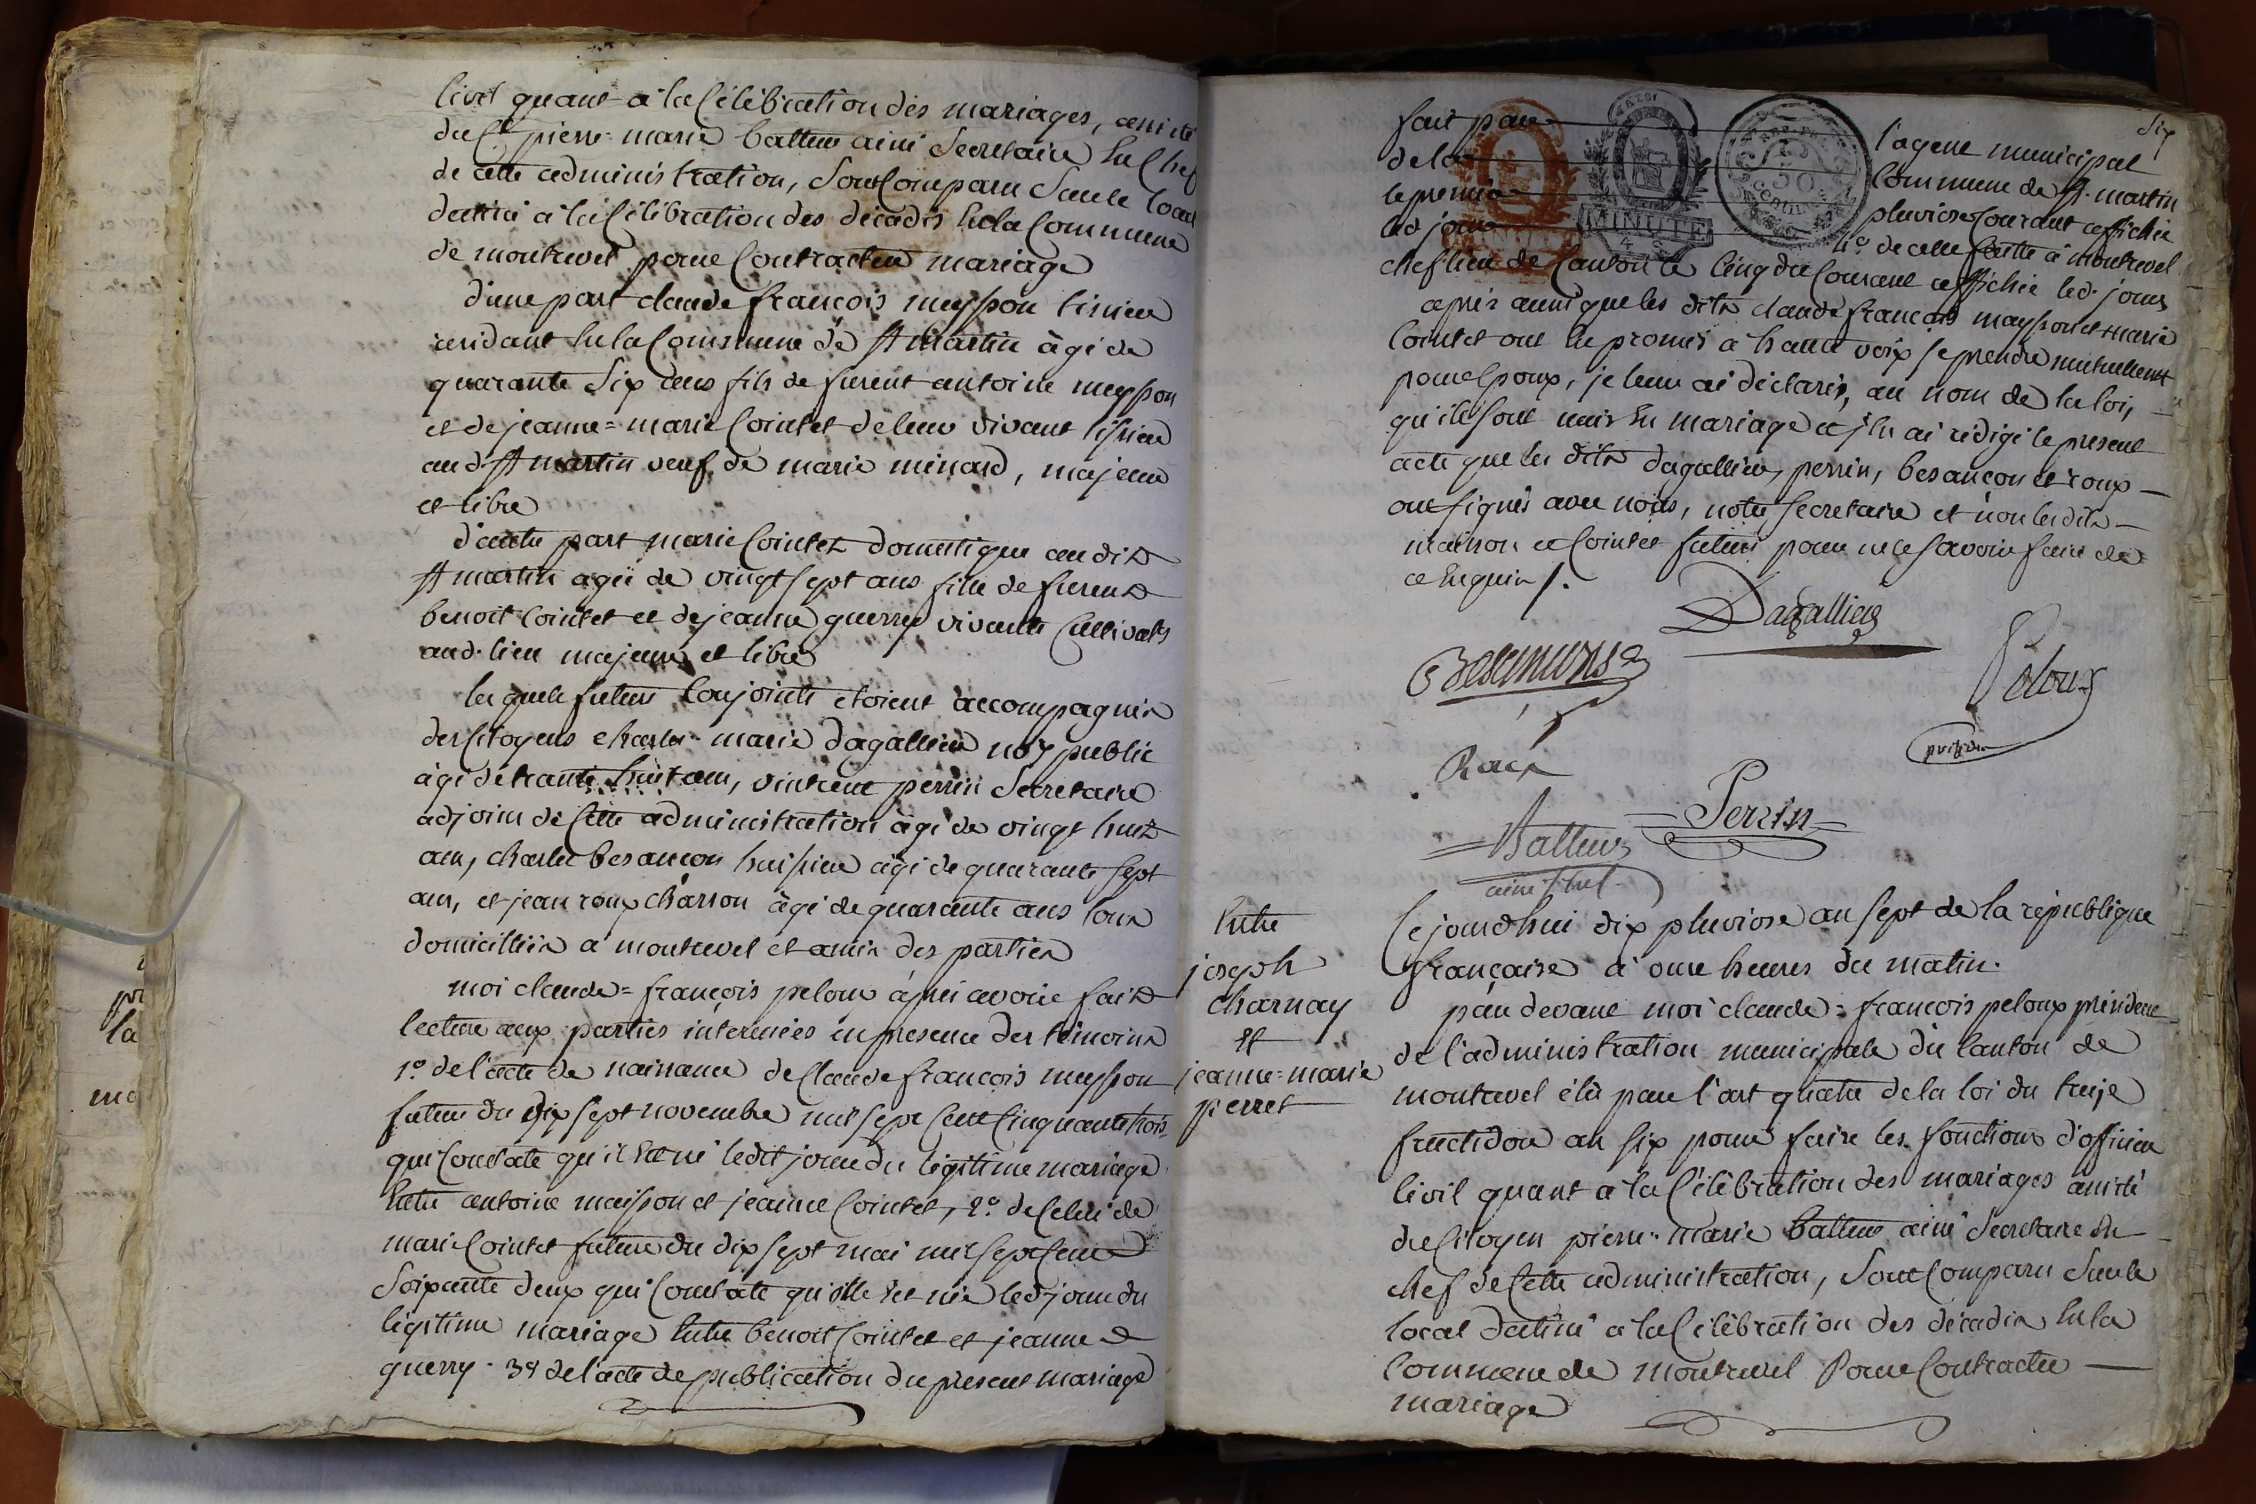 Civil quant à la Célébration des mariages, assisté
du Cen pierre-marie battur ainé Secretaire En Chef
de cette administration, Sont Comparu Dans le local
destiné à la Célébration des décadis En la Commune
de montrevel pour Contracter mariage
d'une part claude françois meysson
résidant En la Commune de St martin âgé de
quarante Six ans fils de furent antoine meysson
et de jeanne=marie Cointet de leur vivant
aud St martin veuf de marie minard, majeur
et libre
d'autre part marie Cointet domestique au dit
St martin agée de vingt sept ans fille de furent
benoit Cointet et de jeanne guerry vivants Cultivatrs
aud. lieu majeure et libre
les quels futurs Conjoints etoient accompagnés
des Citoyens charles-marie dagallier nore public
âgé de trante huit ans, vintcent perrin Secretaire
adjoint de Cette administration âgé de vingt huit
ans, charles besançon huissier âgé de quarante sept
ans, et jean roux charron âgé de quarante ans tous
domicilliés à montrevel et amis des parties
moi claude=françois peloux après avoir fait
lecture aux parties interessées en presence des témoins
1o. de l'acte de naissance de Claude françois meysson
futur du dix sept novembre mil sept Cent Cinquante trois
qui Constate qu'il Est né ledit jour du légitime mariage
Entre antoine maisson et jeanne Cointet, 2o. de Celui de
marie Cointet future du dix sept mai mil sept Cent
Soixante deux qui Constate qu'elle Est née led. jour du
légitime mariage Entre benoit Cointet et jeanne
guerry. 3o de l'acte de publication du present mariage
Six
fait par l'agent municipal
de la Commune de St. martin
le premier pluviose Courant affichée
led jour 4o. de celle faitte à montrevel
MINUTE
50
Centimes
chef lieu de Canton le Cinq du Courant affichée led. jour
après aussi que les dits claude françois maysson et marie
Cointet ont Eu promis à haute voix se prendre mutuellement
pour Epoux, je leur ai déclaré, au nom de la loi,
qu'ils sont unis En mariage et j'En ai rédigé le present
acte que les dits dagallier, perrin, besançon et roux
ont signés avec nous, notre secretaire et non les dits
maisson et Cointet futurs pour ne le savoir faire de
ce Enquis /.
Dagallier
Besançons
Peloux
president
Roux
Perrin
Battur
ainé
Entre
joseph
charnay
Et
jeanne=marie
perret
Cejourd'hui dix pluviose an sept de la république
française à onze heures du matin.
par devant moi claude=françois peloux président
de l'administration municipale du Canton de
montrevel élû par l'art quatre de la loi du treize
fructidor an six pour faire les fonctions d'officier
Civil quant à la Célébration des mariages assisté
du Citoyen pierre-marie battur ainé Secretaire En
chef de Cette administration, Sont Comparu Dans le
local destiné à la Célébration des décadis En la
Commune de montrevel Pour Contracter
mariage